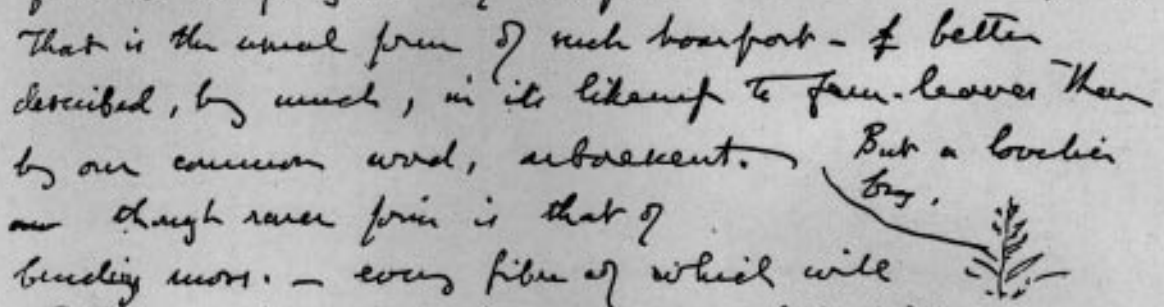 That is the usual form of such hoarfrost - & better
described, by much, in its likeness to fern-leaves than
by our common word, arborescent. But a lovelier
though rarer form is that of
bending moss. - every fibre of which will